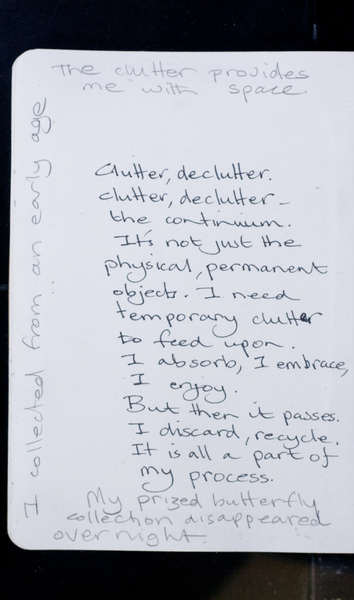 The clutter provides
me with space.
I collected from an early age
Clutter, declutter.
clutter, declutter -
the continuum.
It's not just the
physical, permanent
objects. I need
temporary clutter
to feed upon.
I absorb, I embrace,
I enjoy.
But then it passes.
I discard, recycle.
It is all a part of
my process.
My prized butterfly
collection disappeared
overnight.